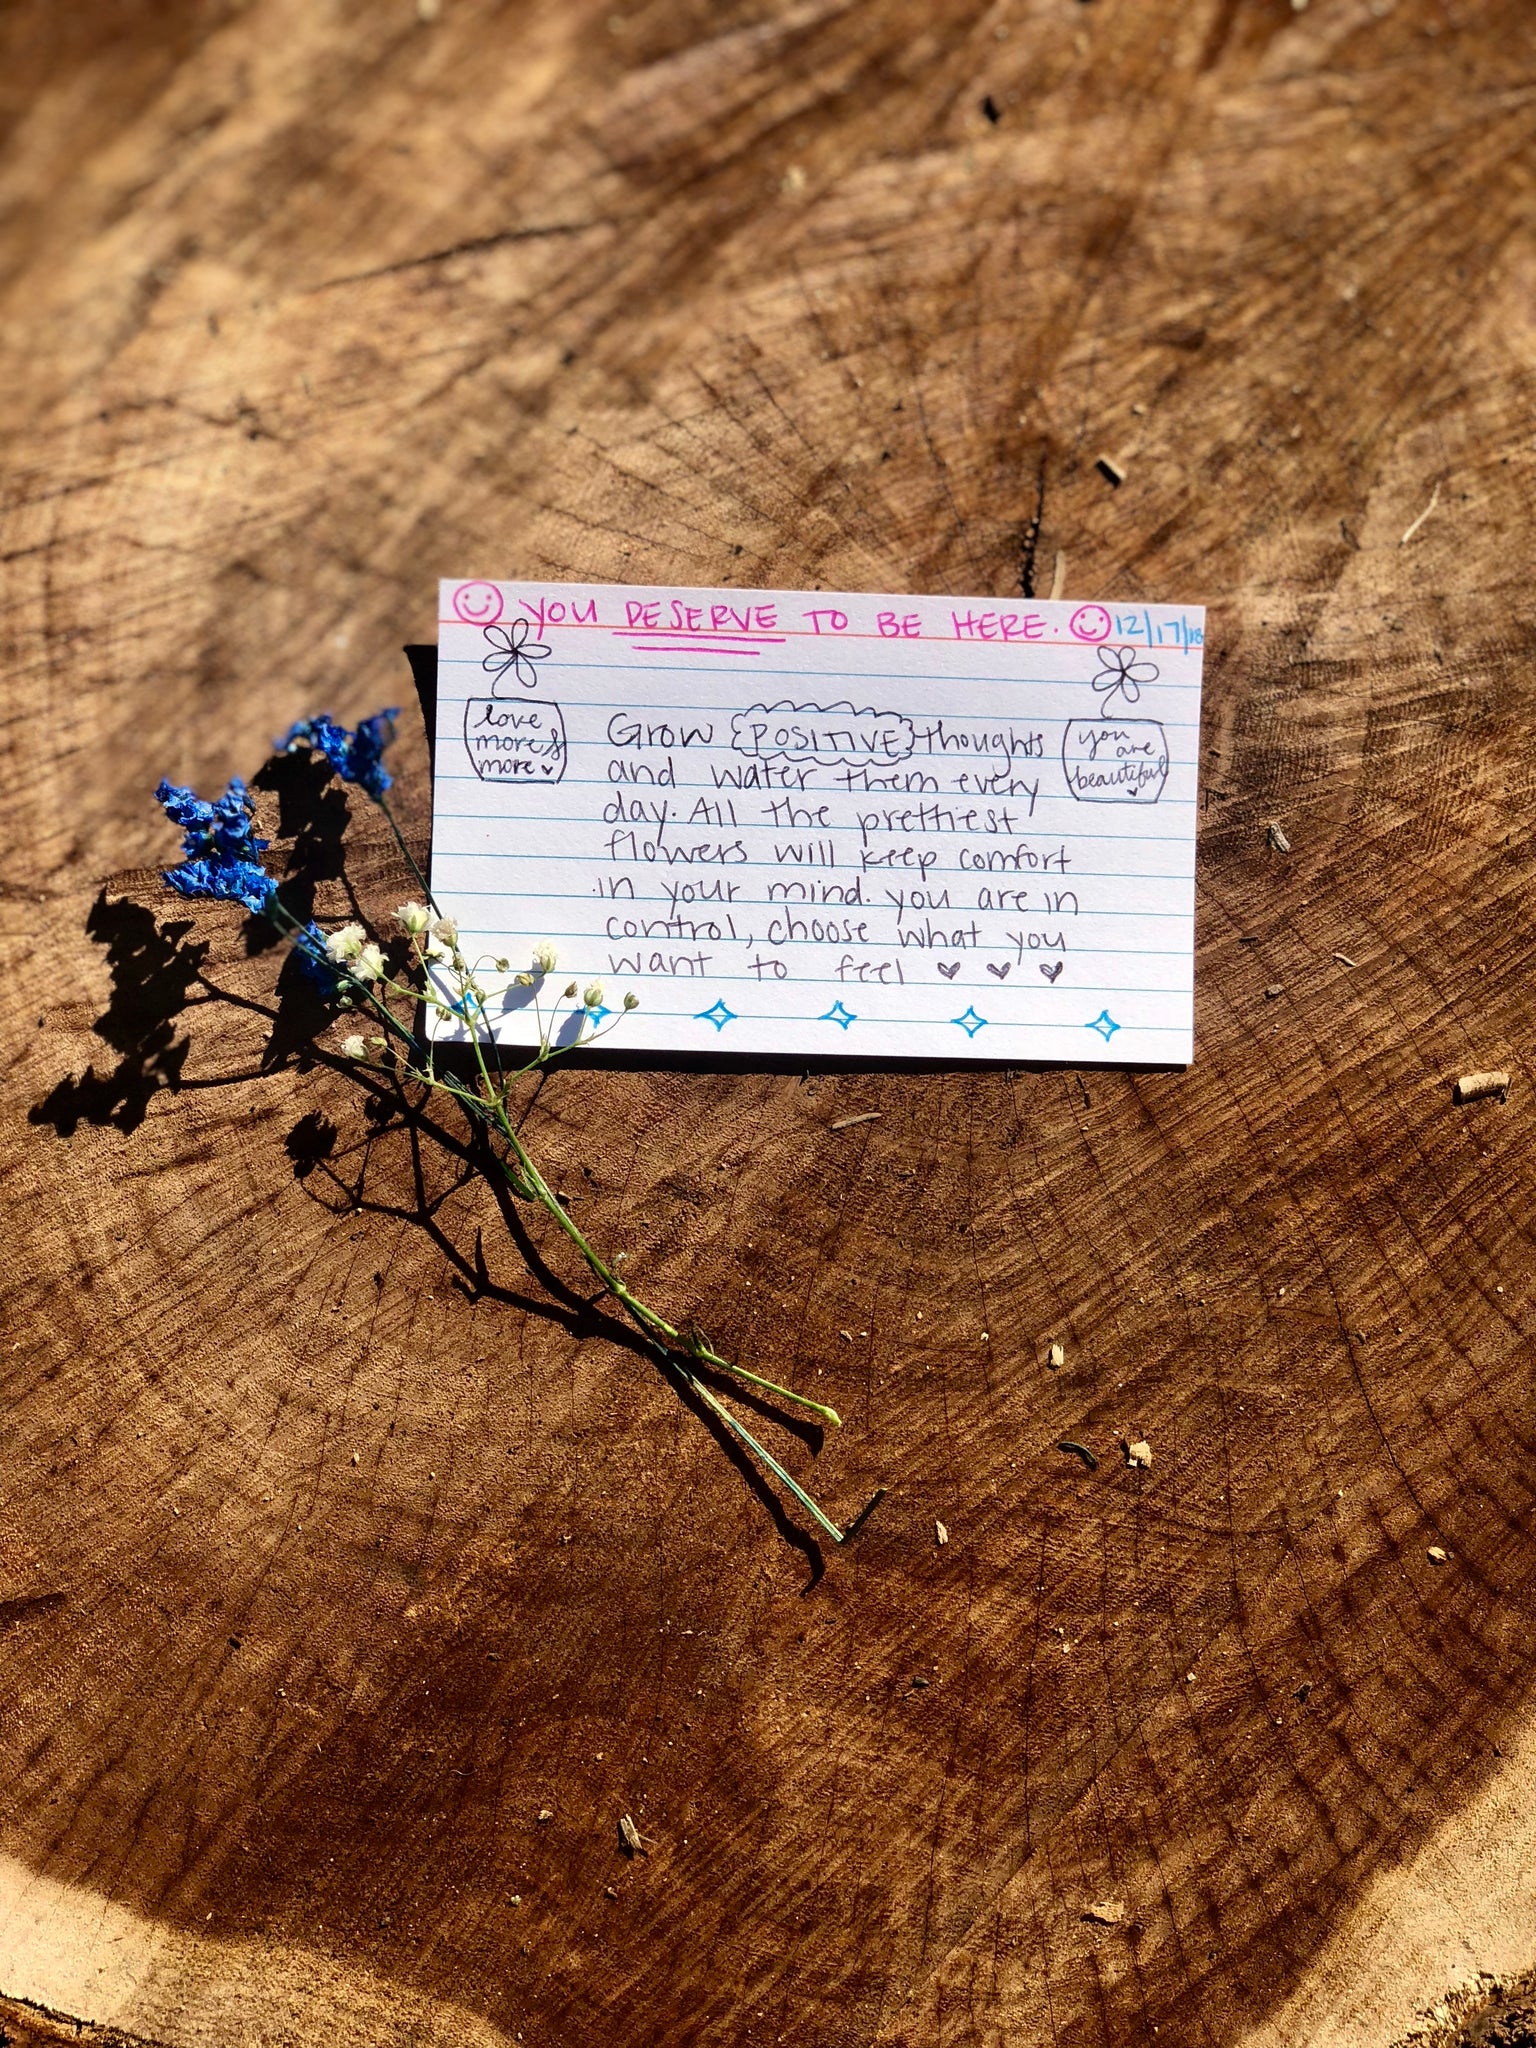 YOU DESERVE TO BE HERE. 12/17/18
love
more &
more
Grow {POSITIVE} thoughts
and water them every
day. All the prettiest
flowers will keep comfort
in your mind. you are in
control, choose what you
want to feel
you
are
beautiful